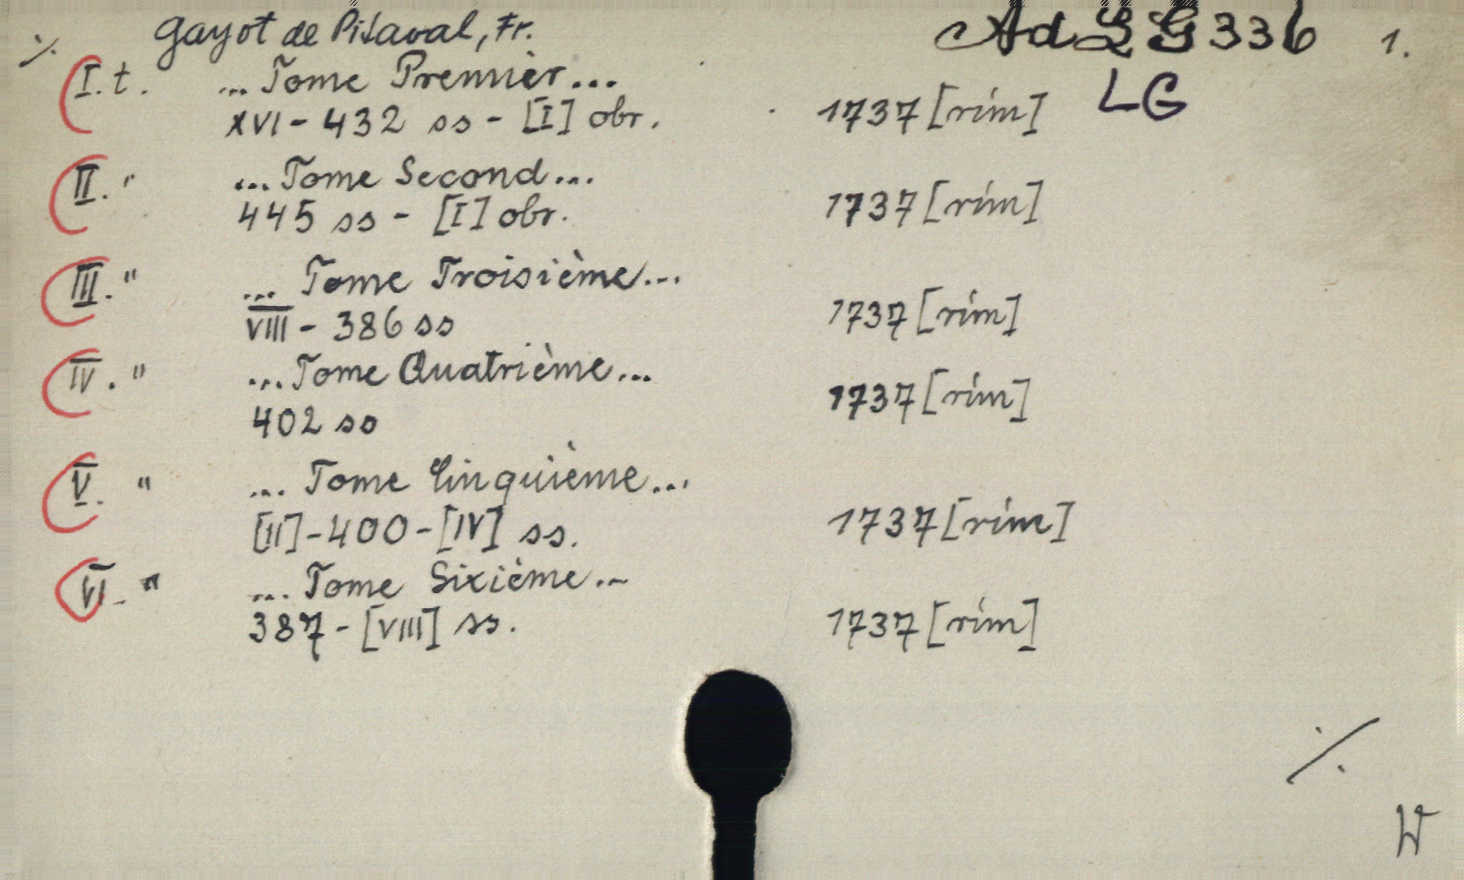 ./. Gayot de Pitaval, Fr. Ad LG 336 1.
I. t. ... Tome Premièr... LG
XVI - 432 ss - [I] obr. 1737 [rím]
II. " ... Tome Second...
445 ss - [I] obr. 1737 [rím]
III. " ... Tome Troisième...
VIII - 386 ss 1737 [rím]
IV. " ... Tome Quatrième...
402 ss 1737 [rím]
V. " ... Tome Cinquième...
[II] - 400 - [IV] ss. 1737 [rím]
VI. " ... Tome Sixième...
387 - [VIII] ss. 1737 [rím]
./.
W